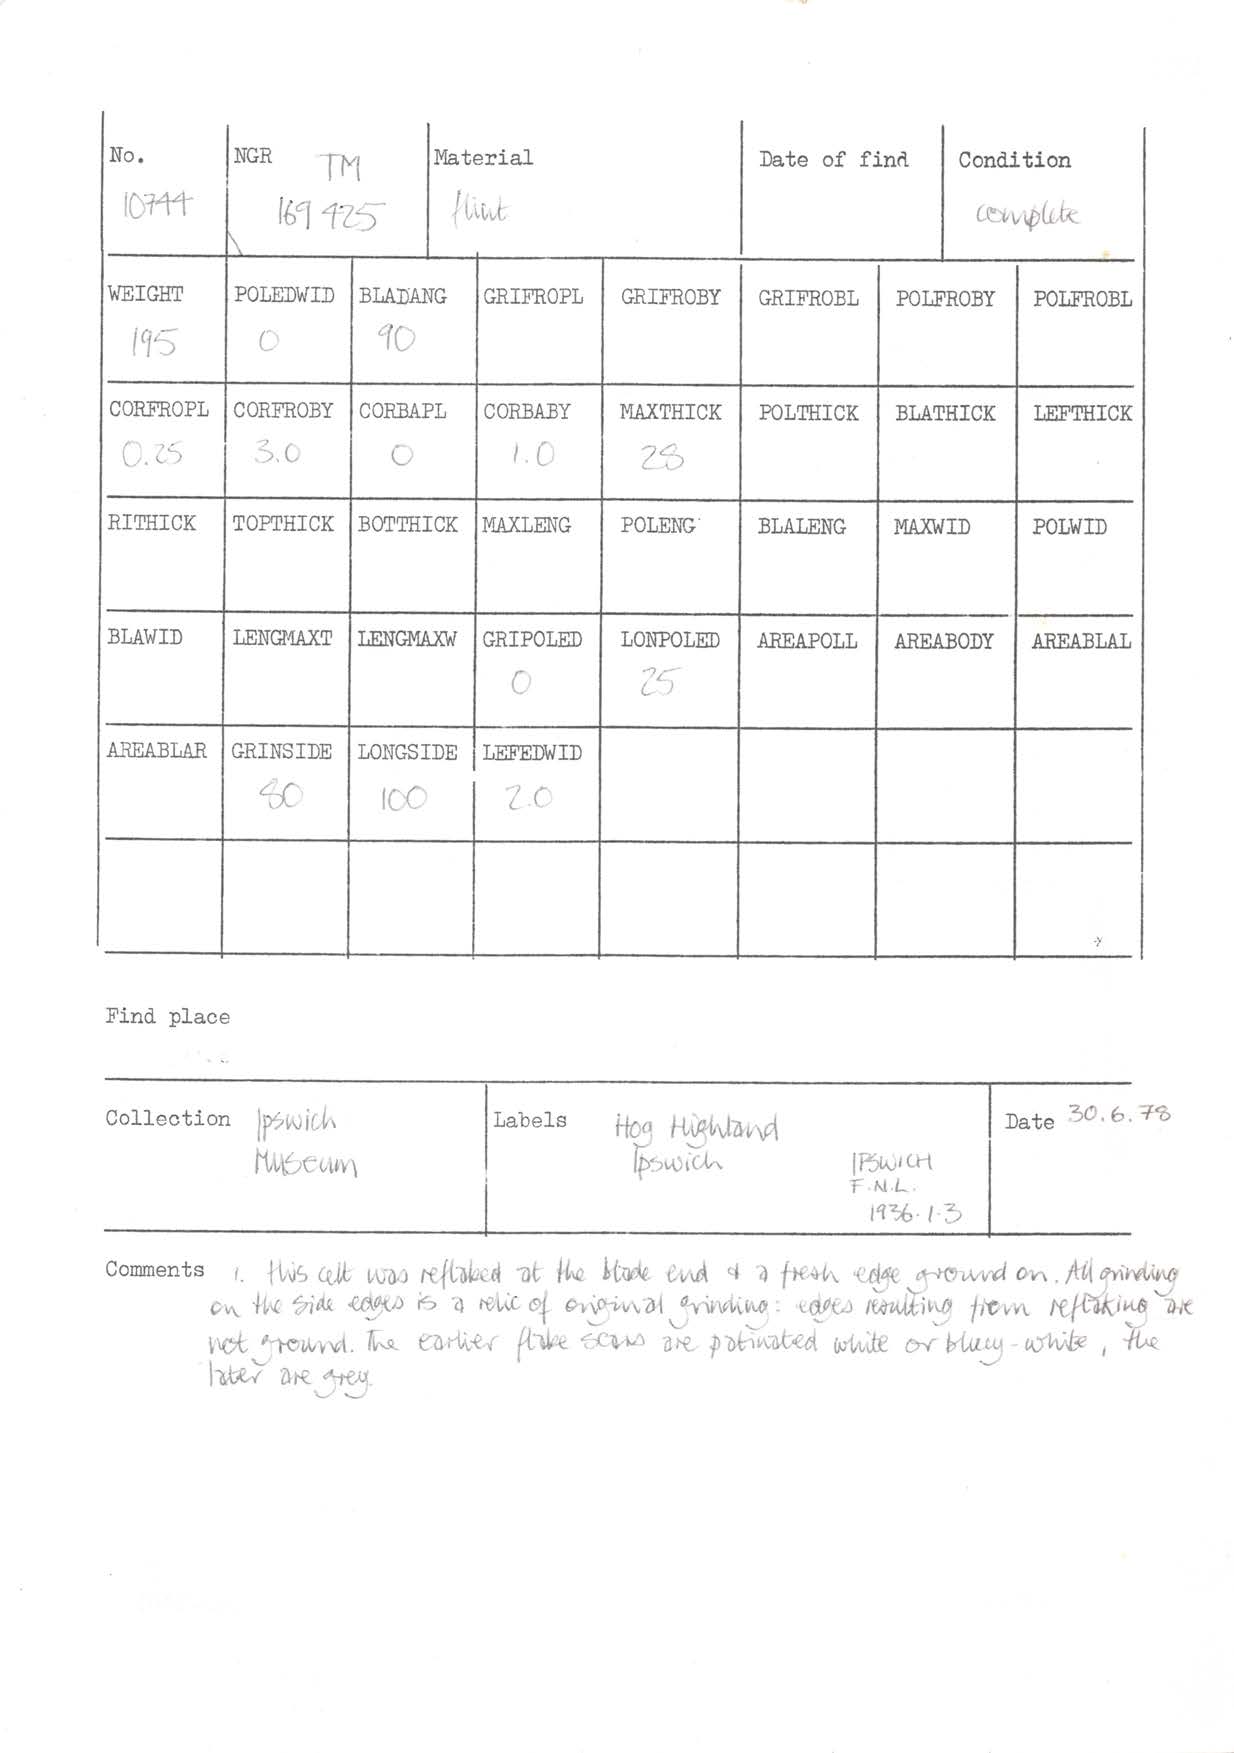 No. NGR TM Material Date of find Condition
10744 169 425 flint complete
WEIGHT POLEDWID BLADANG GRIFROPL GRIFROBY GRIFROBL POLFROBY POLFROBL
195 0 90
CORFROPL CORFROBY CORBAPL CORBABY MAXTHICK POLTHICK BLATHICK LEFTHICK
0.25 3.0 0 1.0 28
RITHICK TOPTHICK BOTTHICK MAXLENG POLENG BLALENG MAXWID POLWID
BLAWID LENGMAXT LENGMAXW GRIPOLED LONPOLED AREAPOLL AREABODY AREABLAL
0 25
AREABLAR GRINSIDE LONGSIDE LEFEDWID
80 100 2.0
Find place
Collection Ipswich Museum
Labels Hog Highland
Ipswich
IPSWICH
F.N.L.
1936.1.3
Date 30.6.78
Comments 1. this celt was reflaked at the blade end & a fresh edge ground on. All grinding
on the side edges is a relic of original grinding: edges resulting from reflaking are
not ground. The earlier flake scars are patinated white or bluey-white, the
later are grey.